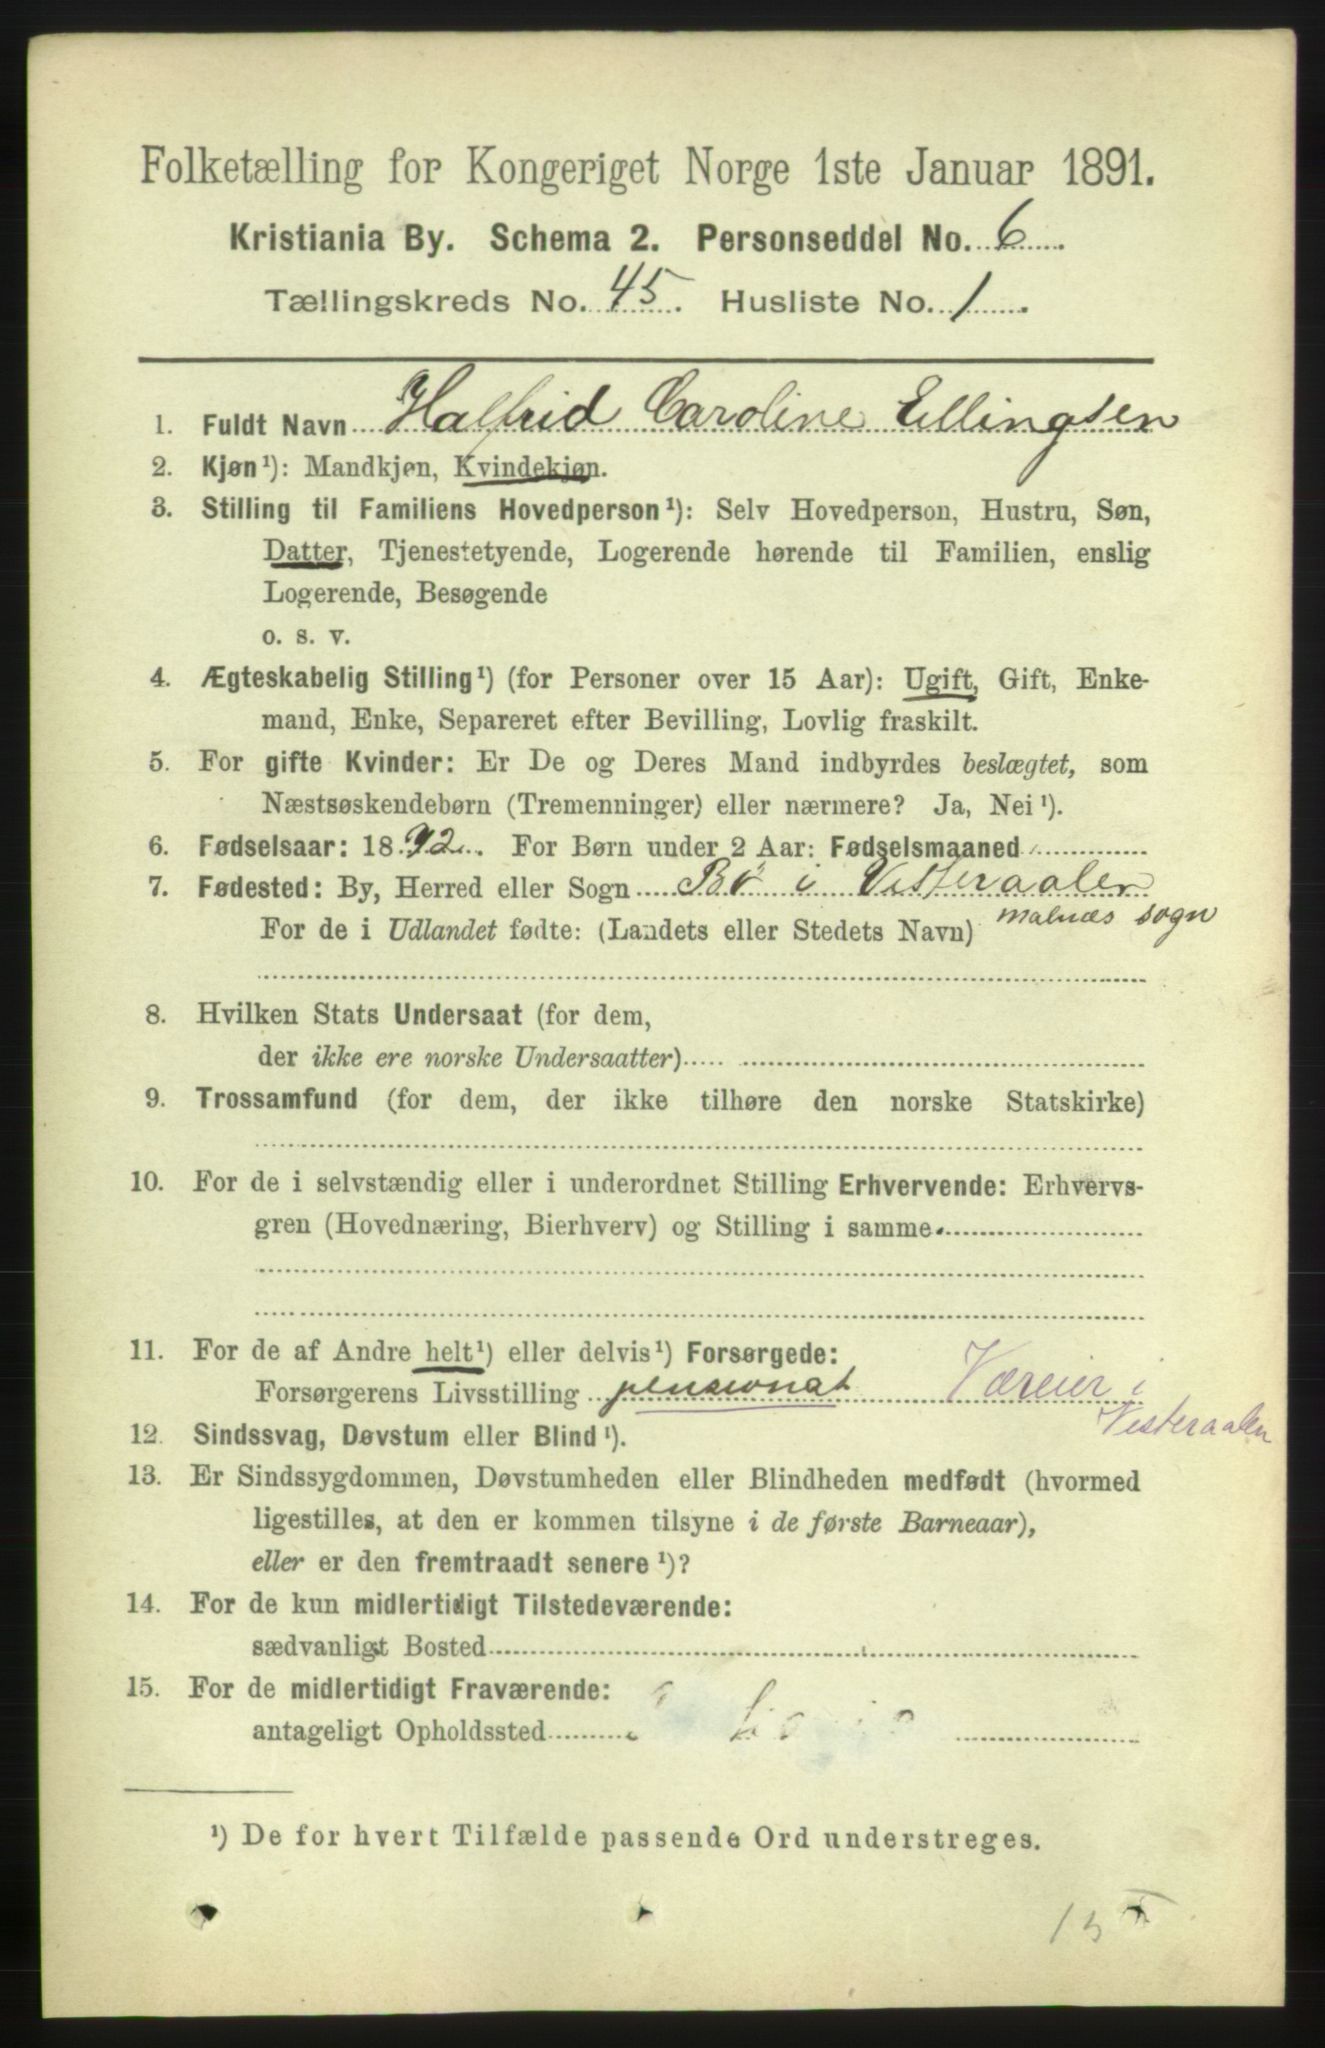 Folketælling for Kongeriget Norge 1ste Januar 1891.
Kristiania By. Schema 2. Personseddel No. 6
Tællingskreds No. 45. Husliste No. 1
1. Fuldt Navn Halfrid Caroline Ellingsen
2. Kjøn¹): Mandkjøn, Kvindekjøn.
3. Stilling til Familiens Hovedperson¹): Selv Hovedperson, Hustru, Søn,
Datter, Tjenestetyende, Logerende hørende til Familien, enslig
Logerende, Besøgende
o. s. v.
4. Ægteskabelig Stilling¹) (for Personer over 15 Aar): Ugift, Gift, Enke-
mand, Enke, Separeret efter Bevilling, Lovlig fraskilt.
5. For gifte Kvinder: Er De og Deres Mand indbyrdes beslægtet, som
Næstsøskendebørn (Tremenninger) eller nærmere? Ja, Nei¹).
6. Fødselsaar: 1872. For Børn under 2 Aar: Fødselsmaaned
7. Fødested: By, Herred eller Sogn Bø i Vesteraalen
For de i Udlandet fødte: (Landets eller Stedets Navn) Malnæs sogn
8. Hvilken Stats Undersaat (for dem,
der ikke ere norske Undersaatter)
9. Trossamfund (for dem, der ikke tilhøre den norske Statskirke)
10. For de i selvstændig eller i underordnet Stilling Erhvervende: Erhvervs-
gren (Hovednæring, Bierhverv) og Stilling i samme
11. For de af Andre helt¹) eller delvis¹) Forsørgede:
Forsørgerens Livsstilling pensionat Væreier i
Vesteraalen
12. Sindssvag, Døvstum eller Blind¹).
13. Er Sindssygdommen, Døvstumheden eller Blindheden medfødt (hvormed
ligestilles, at den er kommen tilsyne i de første Barneaar),
eller er den fremtraadt senere¹)?
14. For de kun midlertidigt Tilstedeværende:
sædvanligt Bosted
15. For de midlertidigt Fraværende:
antageligt Opholdssted
¹) De for hvert Tilfælde passende Ord understreges.